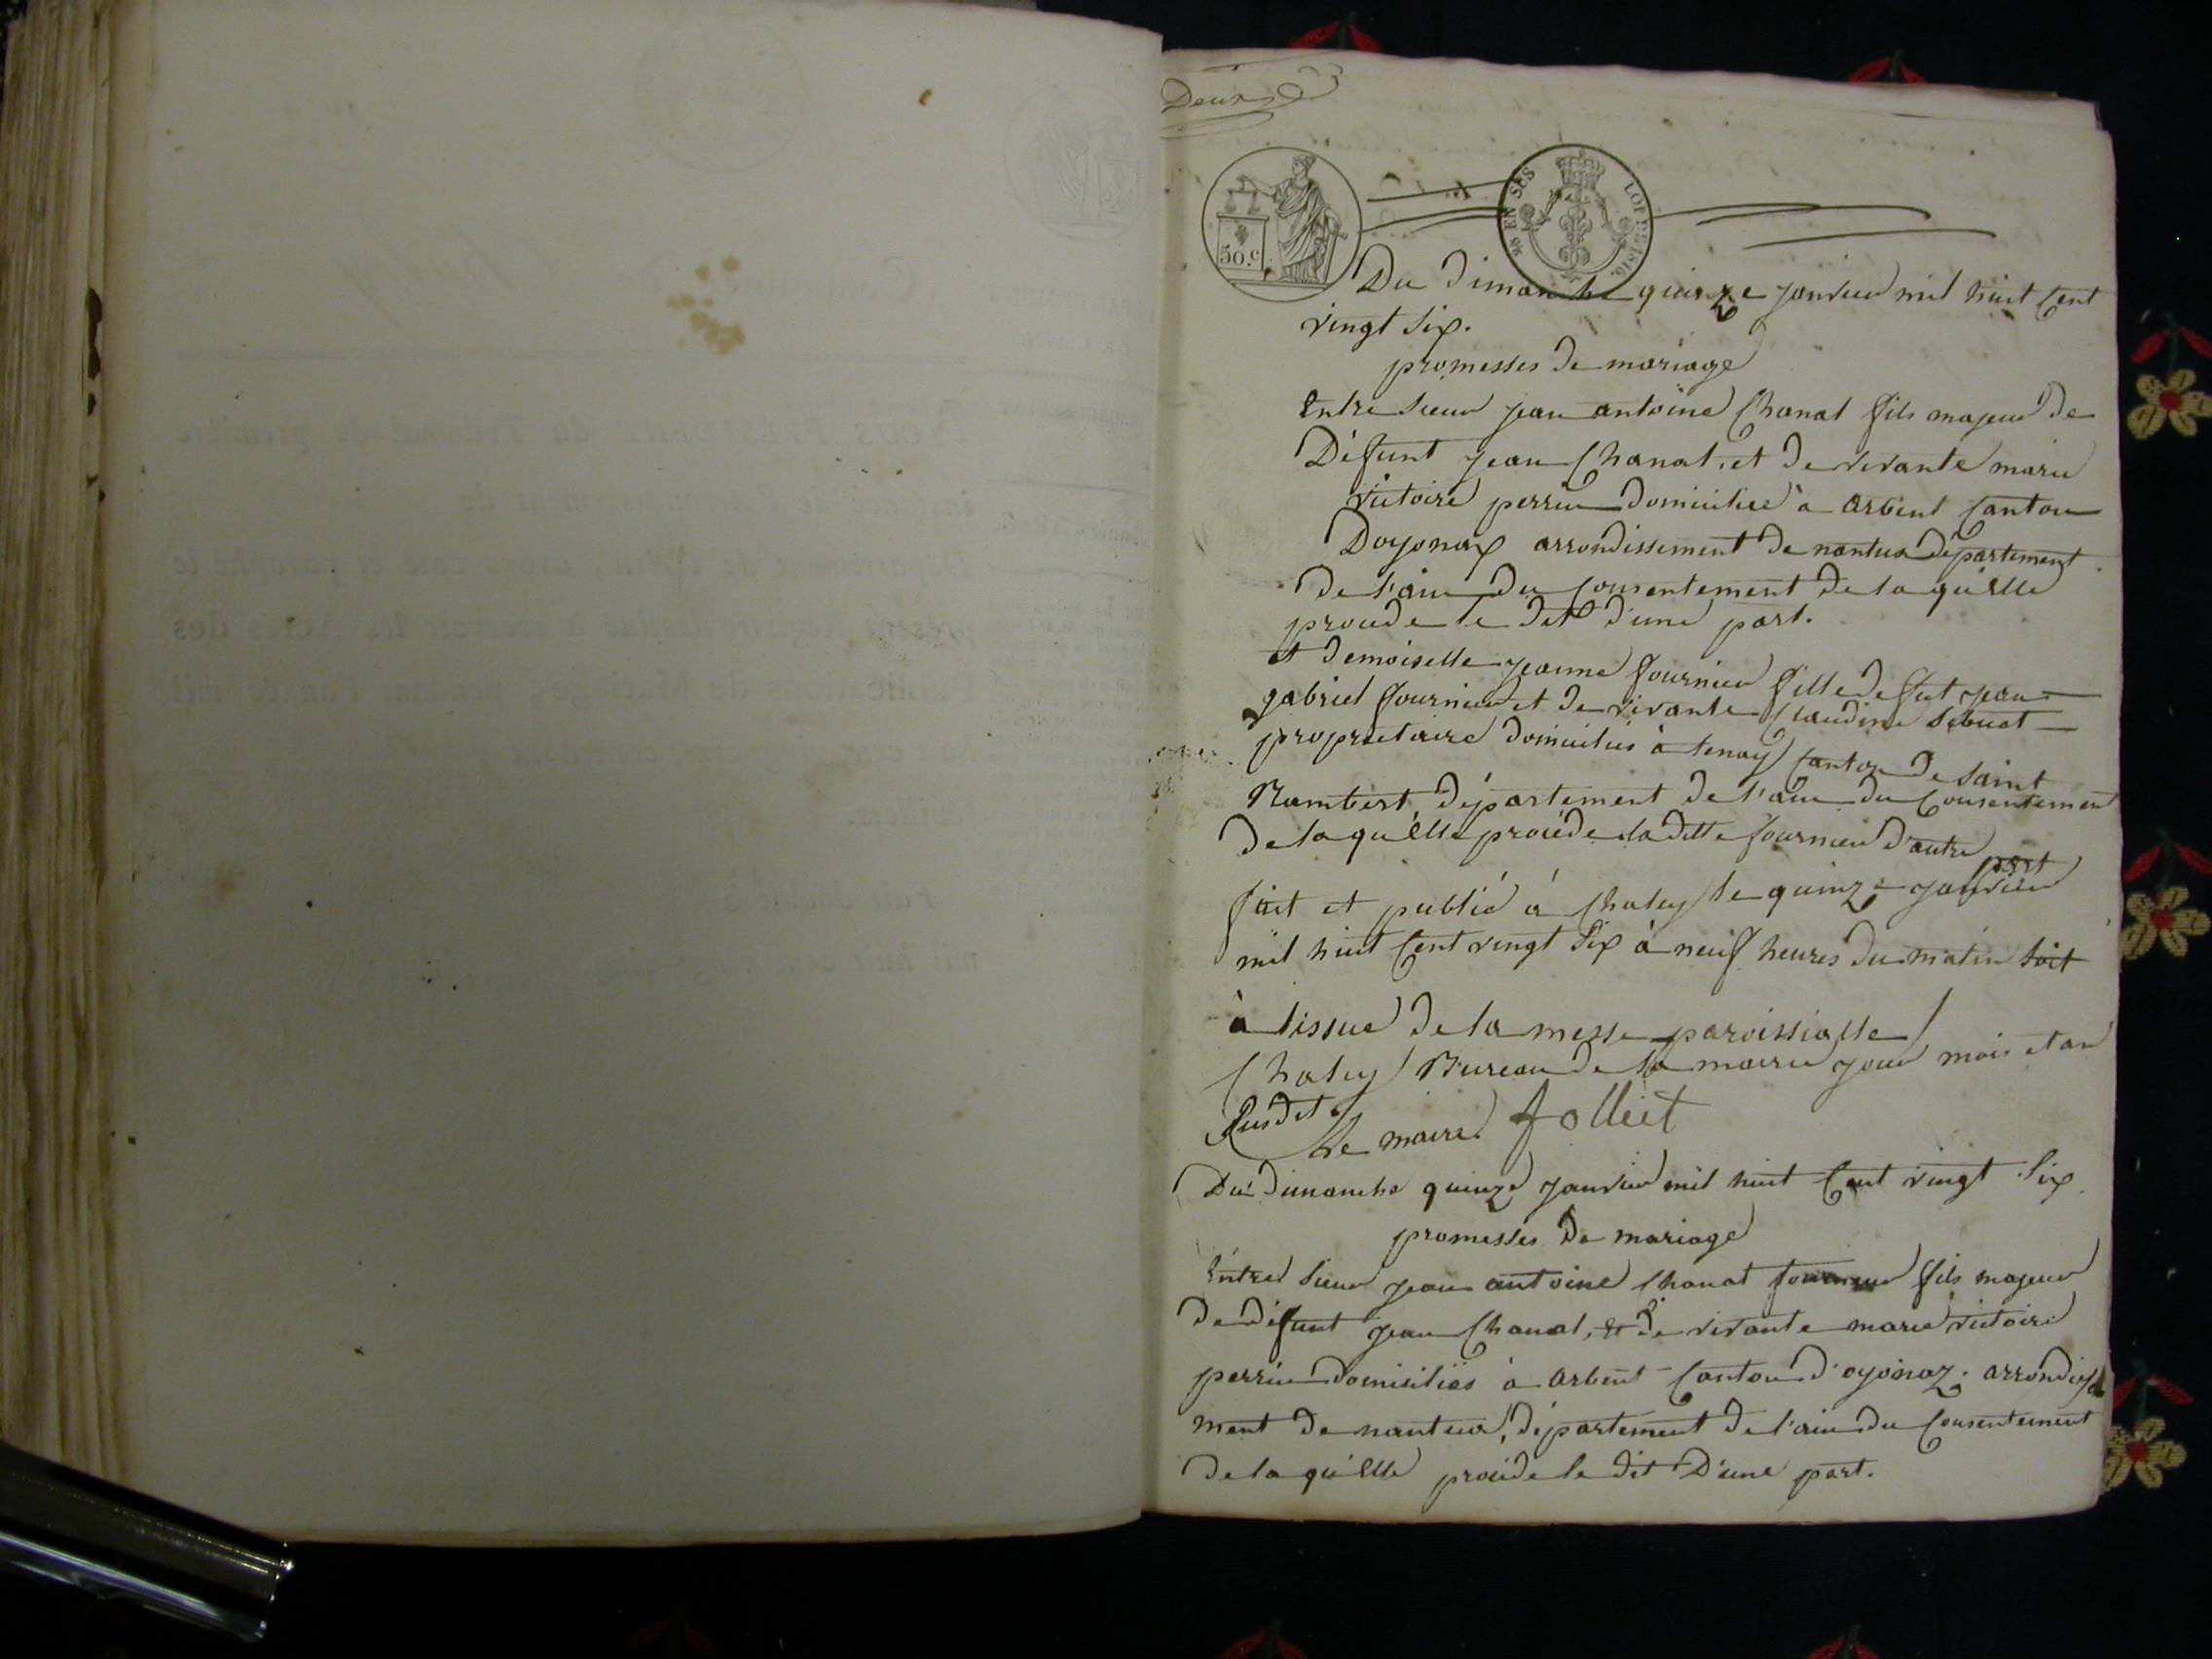 Deux
50.c
28 EN SUS
LOI DE 1816.
Du Dimanche quinze janvier mil huit Cent
vingt Six.
promesses de mariage
Entre Sieur jean antoine Chanal fils majeur de
Défunt jean Chanal, et de vivante marie
victoire perrin domiciliée à arbent Canton
Doyonax arrondissement de nantua département
de l'ain du Consentement de la qu'elle
procède le dit d'une part.
et demoiselle jeanne fournier fille de fut jean
gabriel fournier et de vivante Claudine Sibuet
proprietaire domiciliés à tenay Canton de Saint
Rambert, département de l'ain du Consentement
de la qu'elle procède la ditte fournier d'autre
part
fait et publié à Chaley le quinze janvier
mil huit Cent vingt Six à neuf heures du matin Soit
à lissue de la messe paroissialle
Chaley Bureau de la mairie jour mois et an
Susdit.
Le maire Jolliet
Du Dimanche quinze janvier mil huit Cent vingt Six
promesses de mariage
Entre Sieur jean antoine Chanal fils majeur
de défunt jean Chanal, et de vivante marie victoire
perrin domiciliés à arbent Canton d'oyonaz. arrondisse
ment de nantua, département de l'ain du Consentement
de la qu'elle procède le dit D'une part.